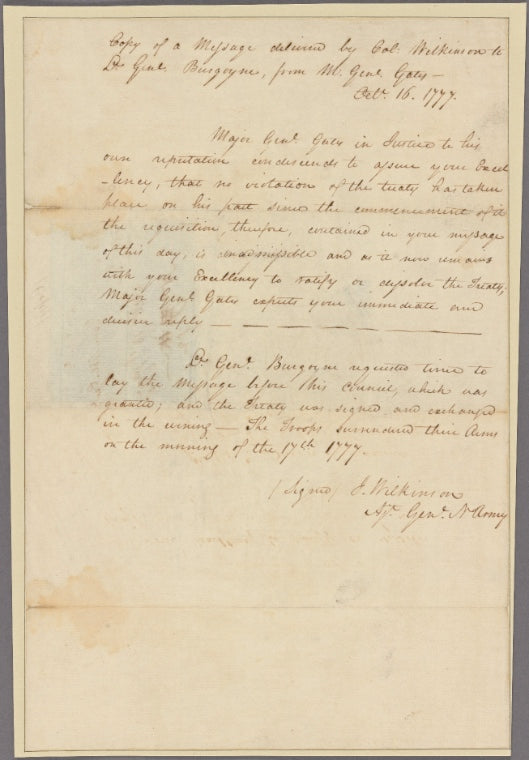 Copy of a Message delivered by Col. Wilkinson to
Lt. Genl. Burgoyne, from M. Genl. Gates —
Octr. 16. 1777.
Major Genl. Gates in Justice to his
own reputation condescends to assure your Excel
-lency, that no violation of the treaty has taken
place on his part since the commencement of it
the requisition, therefore, contained in your message
of this day, is inadmissible and as it now remains
with your Excellency to ratify or dissolve the Treaty,
Major Genl. Gates expects your immediate and
decisive reply —
Lt. Genl. Burgoyne requested time to
lay the message before his council, which was
granted; and the Treaty was signed and exchanged
in the evening — The Troops surrendered their Arms
on the morning of the 17th 1777.
(Signed) J. Wilkinson
Ajt. Genl. N Army